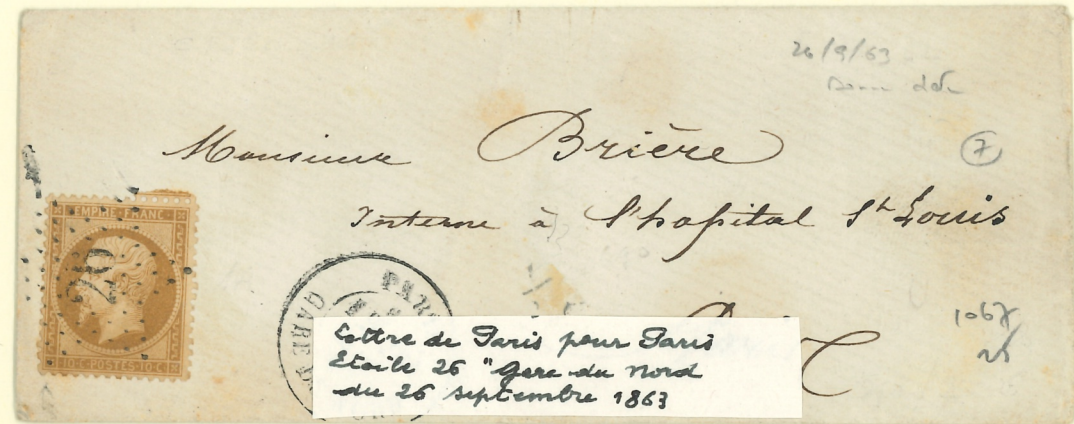 26/9/63
Monsieur Brière
7
Interne à l'hopital St Louis
EMPIRE FRANC
26
10 C POSTES 10 C
PARIS
GARE
1067
Lettre de Paris pour Paris
Etoile 26 "Gare du Nord
du 26 septembre 1863